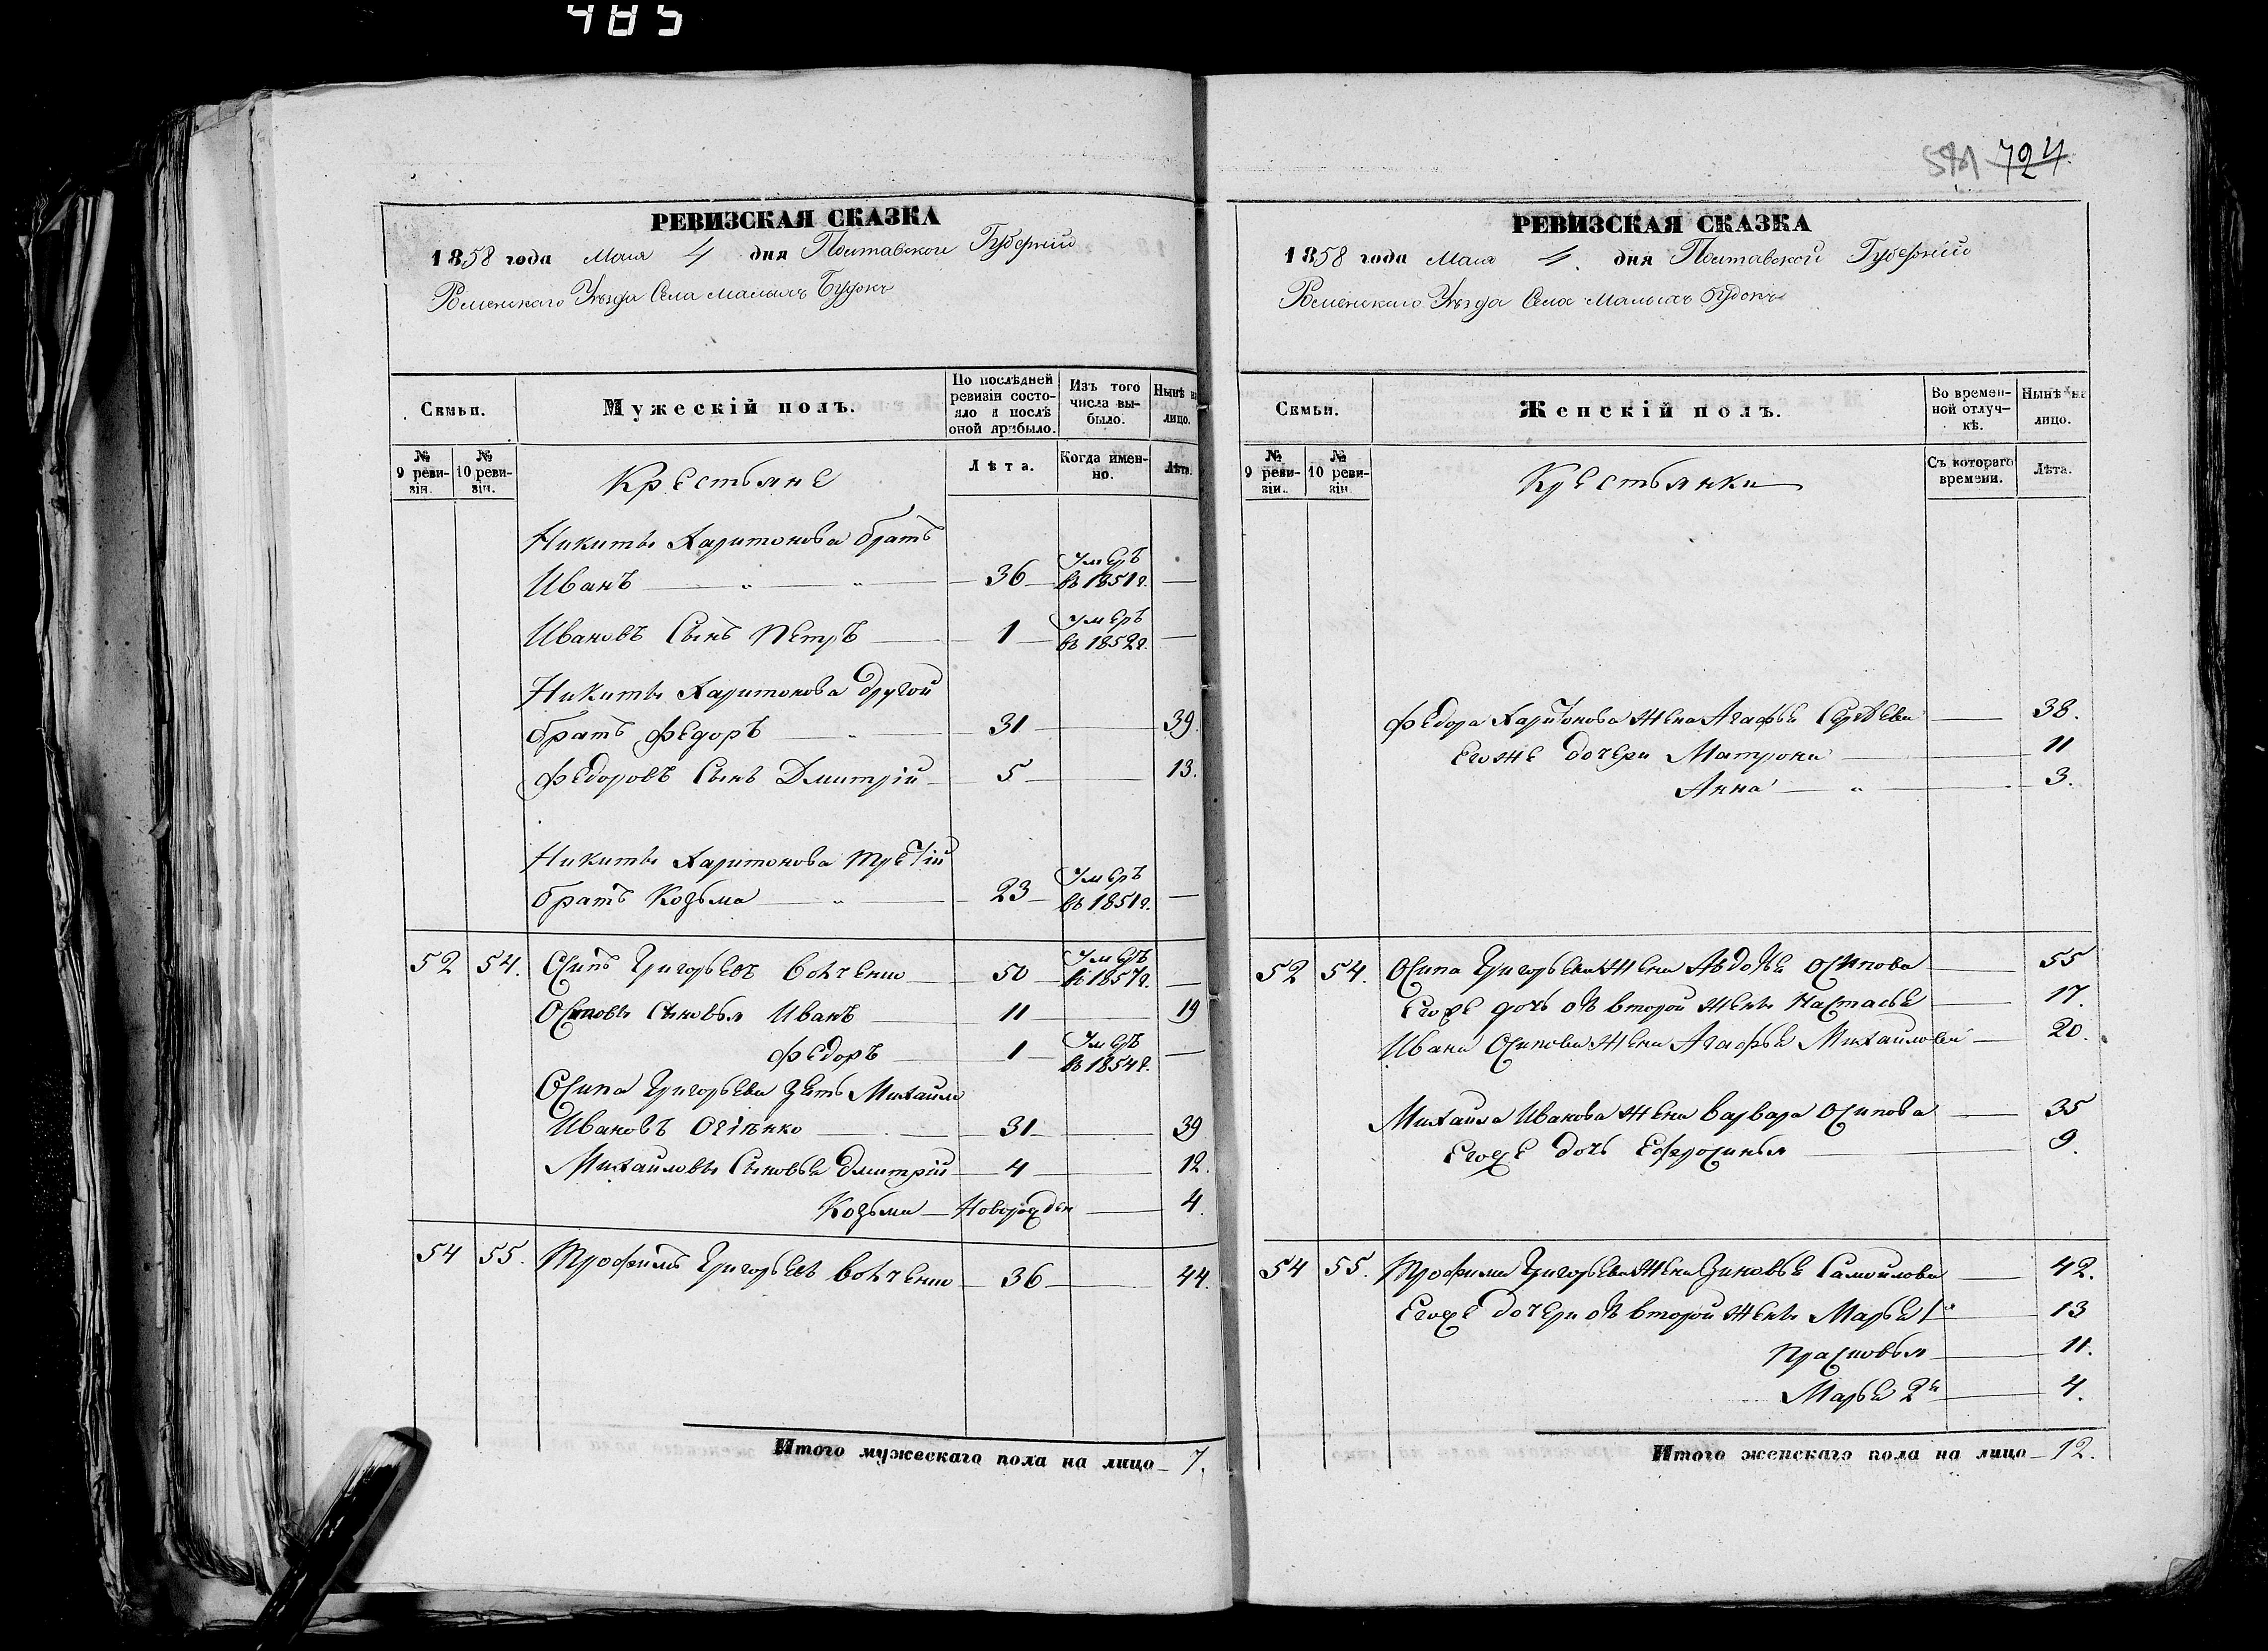 485
РЕВИЗСКАЯ СКАЗКА
1858 года Мая 4 дня Полтавской Губерніи
Роменскаго Уѣзда Села Малыхъ Будокъ
Семьи.
Мужескій полъ.
По послѣдней ревизіи состояло и послѣ оной прибыло.
Изъ того числа выбыло.
Нынѣ на лицо.
№ 9 ревизіи.
№ 10 ревизіи.
Крестьяне
Лѣта.
Когда именно.
Лѣта.
Никиты Харитонова братъ
Иванъ — „ — „ — 36 — Умеръ въ 1851 г. —
Ивановъ Сынъ Петръ — 1 — Умеръ въ 1852 г. —
Никиты Харитонова другой
братъ Федоръ — „ — 31 — 39
Федоровъ Сынъ Дмитрій — 5 — 13.
Никиты Харитонова третій
братъ Козьма — „ — 23 — Умеръ въ 1851 г. —
52 54. Осипъ Григорьевъ — 50 — Умеръ въ 1857 г. —
Осиповы Сыновья Иванъ — 11 — 19
Федоръ — 1 — Умеръ въ 1854 г. —
Осипа Григорьева зять Михайло
Ивановъ — 31 — 39
Михайловы Сыновья Дмитрій — 4 — 12.
Козьма — Новорожден — 4.
54 55. Трофимъ Григорьевъ — 36 — 44.
Итого мужескаго пола на лицо — 7.
724.
РЕВИЗСКАЯ СКАЗКА
1858 года Мая 4. дня Полтавской Губерніи
Роменскаго Уѣзда Села Малыхъ Будокъ
Семьи.
Женскій полъ.
Во временной отлучкѣ.
Нынѣ на лицо.
№ 9 ревизіи.
№ 10 ревизіи.
Крестьянки
Съ котораго времени.
Лѣта.
Федора Харитонова жена Агафья Сергѣева — 38.
Его же дочери Матрона — 11
Анна — „ — 3.
52 54. Осипа Григорьева жена Авдотья Осипова — 55
Егоже дочь отъ второй жены Настасья — 17.
Ивана Осипова жена Агафья Михайлова — 20.
Михайла Иванова жена Варвара Осипова — 35
Егоже дочь Ефросинья — 9.
54 55. Трофима Григорьева жена Зиновья Самойлова — 42.
Егоже дочери отъ второй жены Марья 1я — 13
Прасковья — 11.
Марья 2я — 4.
Итого женскаго пола на лицо — 12.